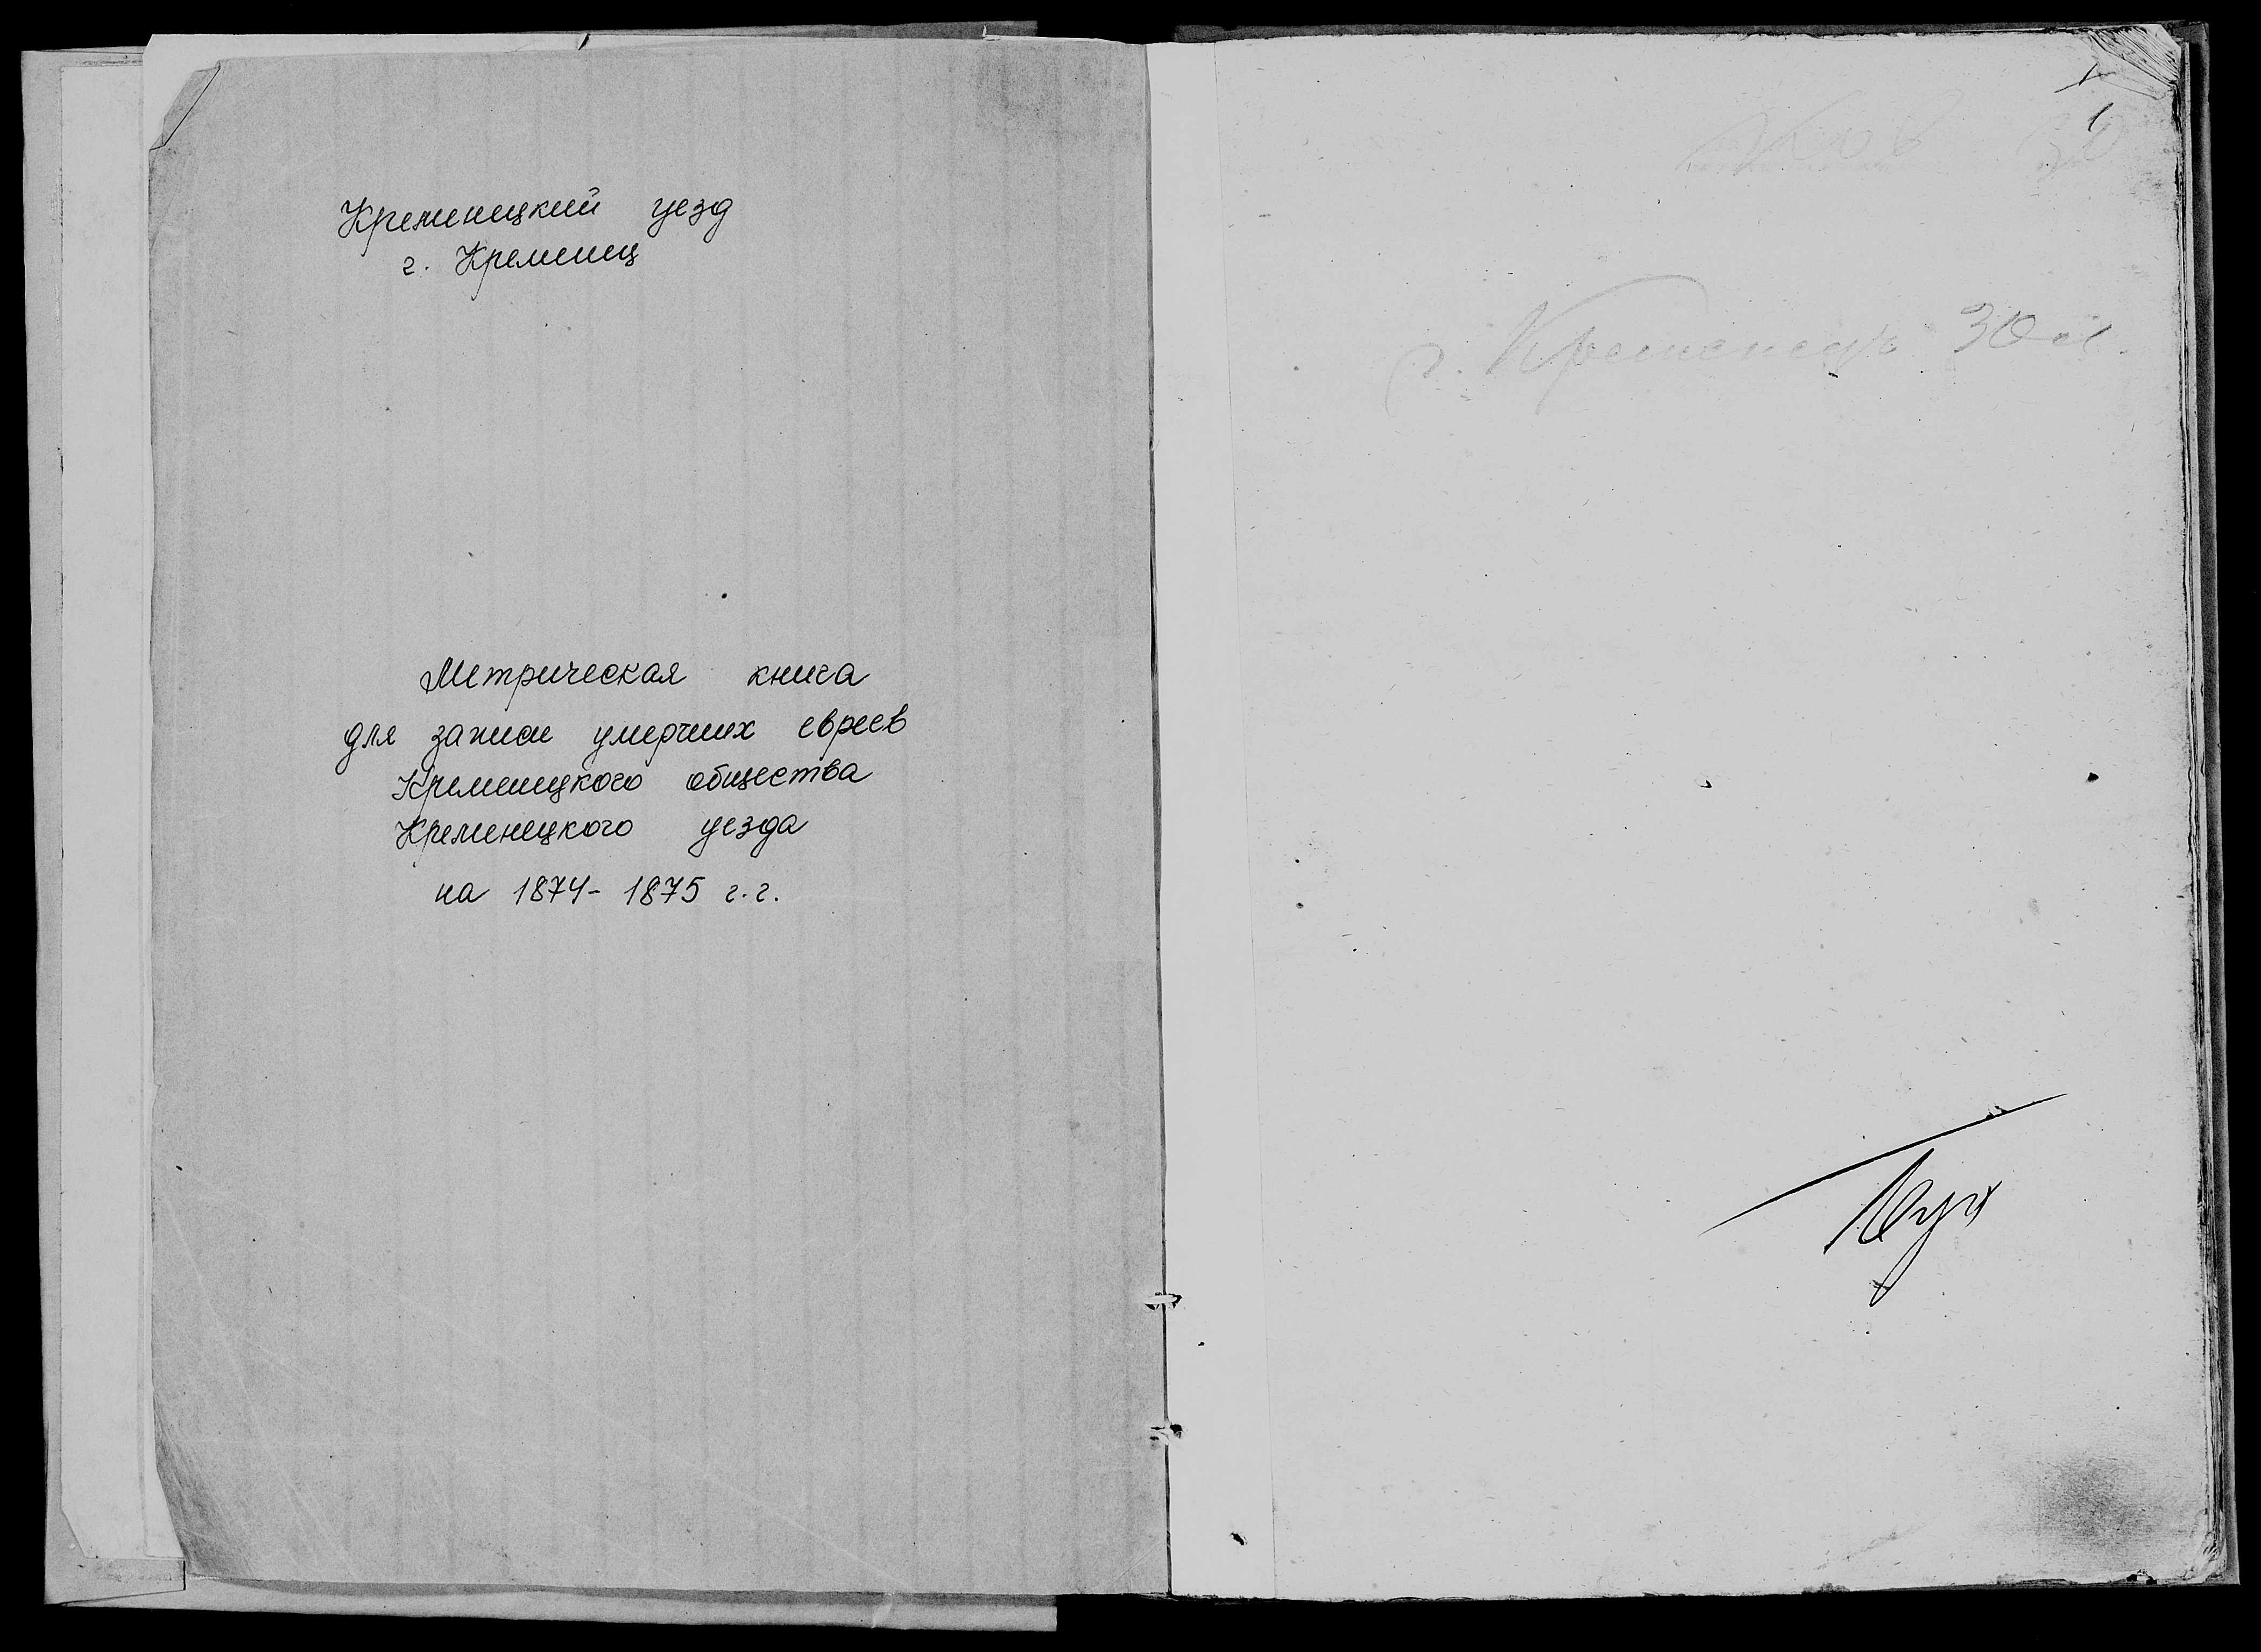 Кременецкий уезд
г. Кременец
Метрическая книга
для записи умерших евреев
Кременецкого общества
Кременецкого уезда
на 1874-1875 г.г.
1
г. Кременецъ 30 л.